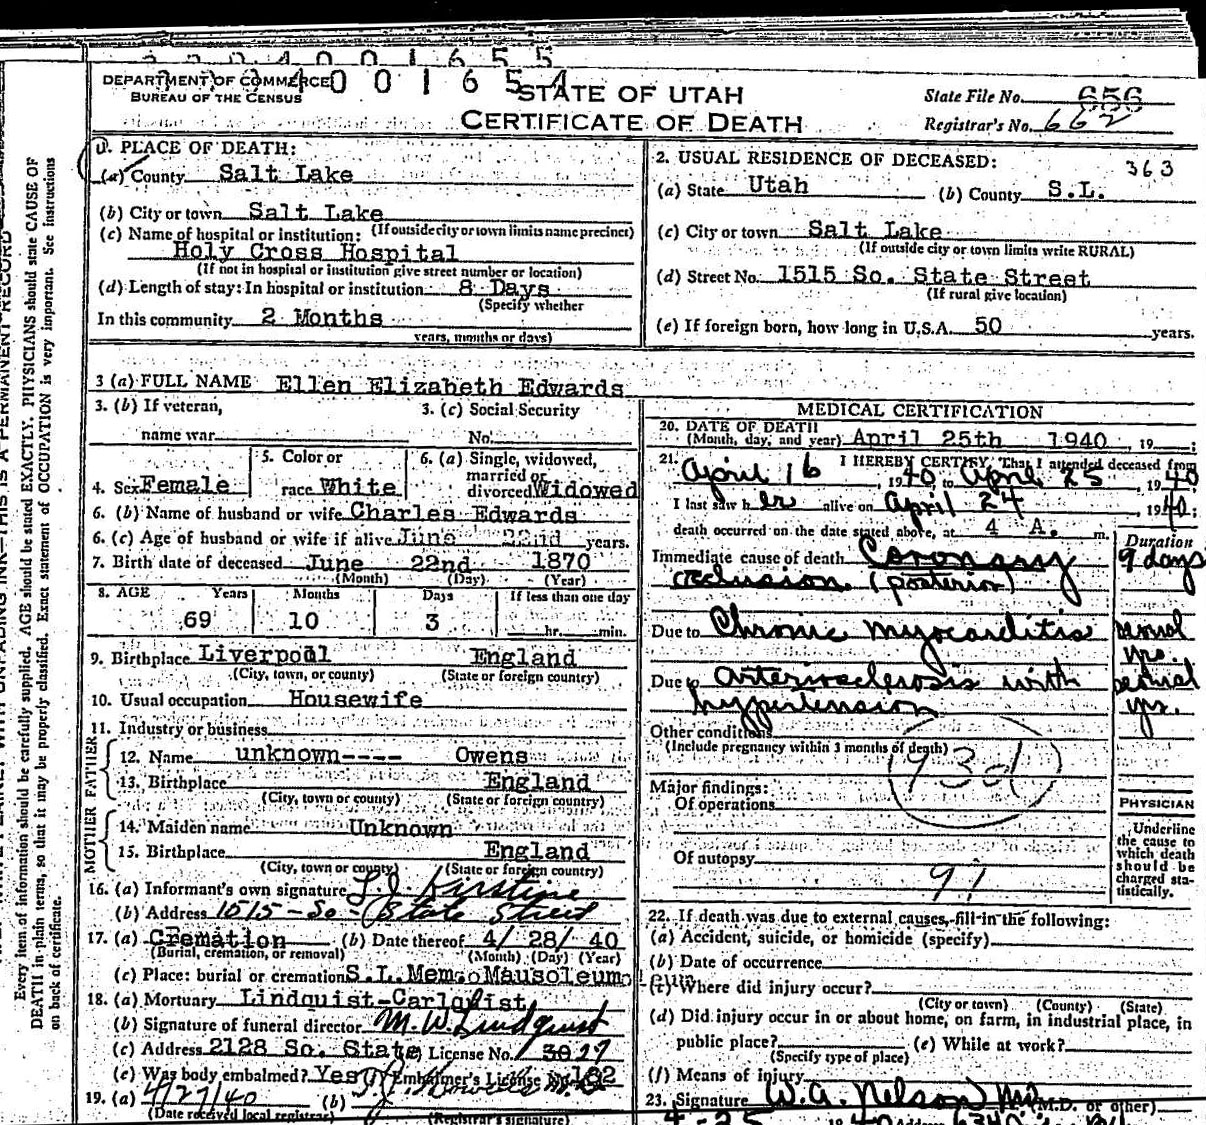 001654
DEPARTMENT OF COMMERCE
BUREAU OF THE CENSUS
STATE OF UTAH
CERTIFICATE OF DEATH
State File No. 656
Registrar's No. 662
1. PLACE OF DEATH:
(a) County Salt Lake
(b) City or town Salt Lake
(If outside city or town limits name precinct)
(c) Name of hospital or institution:
Holy Cross Hospital
(If not in hospital or institution give street number or location)
(d) Length of stay: In hospital or institution 8 Days
(Specify whether
In this community 2 Months
years, months or days)
2. USUAL RESIDENCE OF DECEASED:
363
(a) State Utah (b) County S.L.
(c) City or town Salt Lake
(If outside city or town limits write RURAL)
(d) Street No. 1515 So. State Street
(If rural give location)
(e) If foreign born, how long in U.S.A. 50 years.
3 (a) FULL NAME Ellen Elizabeth Edwards
3. (b) If veteran,
name war
3. (c) Social Security
No.
4. Sex Female
5. Color or
race White
6. (a) Single, widowed,
married or
divorced Widowed
6. (b) Name of husband or wife Charles Edwards
6. (c) Age of husband or wife if alive June 22nd years.
7. Birth date of deceased June 22nd 1870
(Month) (Day) (Year)
8. AGE Years Months Days If less than one day
69 10 3 hr. min.
9. Birthplace Liverpool England
(City, town, or county) (State or foreign country)
10. Usual occupation Housewife
11. Industry or business
FATHER
12. Name unknown---- Owens
13. Birthplace England
(City, town or county) (State or foreign country)
MOTHER
14. Maiden name Unknown
15. Birthplace England
(City, town or county) (State or foreign country)
16. (a) Informant's own signature
(b) Address 1515 - So - State Street
17. (a) Cremation (b) Date thereof 4/ 28/ 40
(Burial, cremation, or removal) (Month) (Day) (Year)
(c) Place: burial or cremation S.L. Mem. Mausoleum
18. (a) Mortuary Lindquist-Carlquist
(b) Signature of funeral director M. W. Lindquist
(c) Address 2128 So. State License No.
(e) Was body embalmed? Yes Embalmer's License No. 182
19. (a) 4/27/40 (b)
(Date received local registrar) (Registrar's signature)
MEDICAL CERTIFICATION
20. DATE OF DEATH
(Month, day, and year) April 25th 1940, 19 ;
21. I HEREBY CERTIFY, That I attended deceased from
April 16, 1940 to April 25, 1940
I last saw her alive on April 24, 1940;
death occurred on the date stated above, at 4 A. m.
Duration
Immediate cause of death Coronary 9 days
occlusion (posterior)
Due to Chronic myocarditis several yrs.
Due to arteriosclerosis with several yrs.
hypertension
Other conditions
(Include pregnancy within 3 months of death)
93d
Major findings:
Of operations
Of autopsy
91
PHYSICIAN
Underline
the cause to
which death
should be
charged sta-
tistically.
22. If death was due to external causes, fill in the following:
(a) Accident, suicide, or homicide (specify)
(b) Date of occurrence
(c) Where did injury occur?
(City or town) (County) (State)
(d) Did injury occur in or about home, on farm, in industrial place, in
public place? (e) While at work?
(Specify type of place)
(f) Means of injury
23. Signature W. A. Nelson MD (M.D. or other)
4-25 1940 Address
Every item of information should be carefully supplied. AGE should be stated EXACTLY. PHYSICIANS should state CAUSE OF
DEATH in plain terms, so that it may be properly classified. Exact statement of OCCUPATION is very important. See instructions
on back of certificate.
THIS IS A PERMANENT RECORD